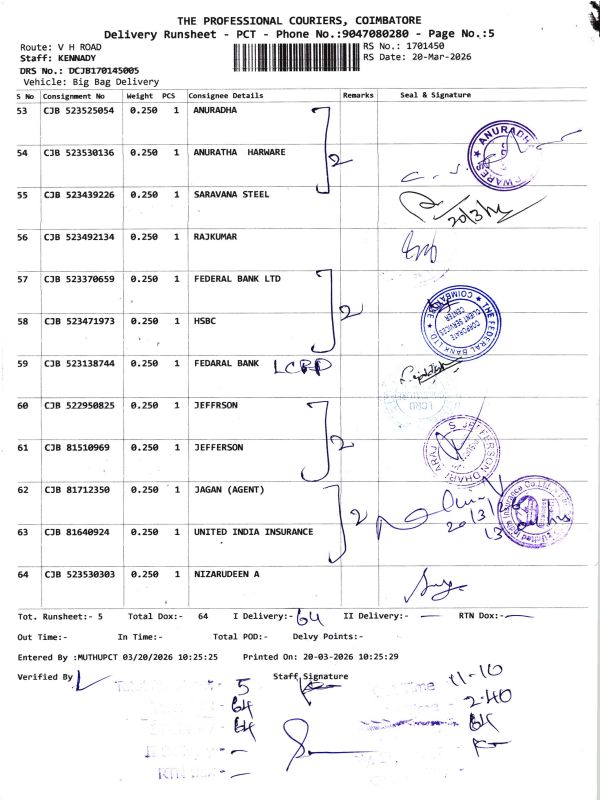 THE PROFESSIONAL COURIERS, COIMBATORE
Delivery Runsheet - PCT - Phone No.:9047080280 - Page No.:5
Route: V H ROAD
RS No.: 1701450
Staff: KENNADY
RS Date: 20-Mar-2026
DRS No.: DCJB170145005
Vehicle: Big Bag Delivery
S No Consignment No Weight PCS Consignee Details Remarks Seal & Signature
53 CJB 523525054 0.250 1 ANURADHA
54 CJB 523530136 0.250 1 ANURATHA HARWARE 2
55 CJB 523439226 0.250 1 SARAVANA STEEL
56 CJB 523492134 0.250 1 RAJKUMAR
57 CJB 523370659 0.250 1 FEDERAL BANK LTD
58 CJB 523471973 0.250 1 HSBC 2
THE FEDERAL BANK LTD COIMBATORE
CORPORATE CLIENT SERVICES CENTER
59 CJB 523138744 0.250 1 FEDARAL BANK
60 CJB 522950825 0.250 1 JEFFRSON
61 CJB 81510969 0.250 1 JEFFERSON 2
62 CJB 81712350 0.250 1 JAGAN (AGENT)
63 CJB 81640924 0.250 1 UNITED INDIA INSURANCE 2
64 CJB 523530303 0.250 1 NIZARUDEEN A
Tot. Runsheet:- 5 Total Dox:- 64 I Delivery:- 64 II Delivery:- — RTN Dox:- —
Out Time:- In Time:- Total POD:- Delvy Points:-
Entered By :MUTHUPCT 03/20/2026 10:25:25 Printed On: 20-03-2026 10:25:29
Verified By Staff Signature
5 11-10
64 2-40
64 64